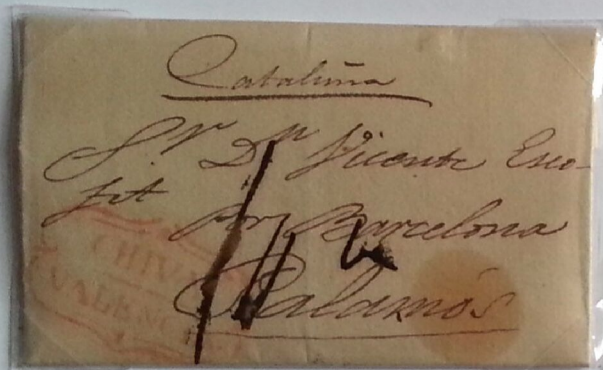 Cataluña
S.r D.n Vicente Esco-
fet por Barcelona
Palamós
CHIVA
VALENCIA